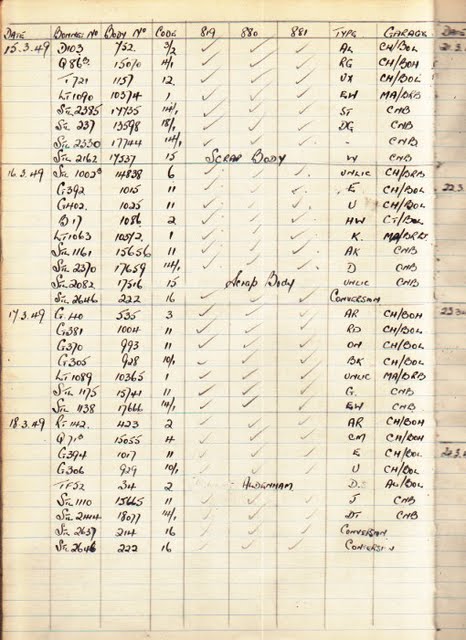 DATE BONNET No BODY No CODE 819 880 881 TYPE GARAGE DATE
15.3.49 D103 752 3/2 ✓ ✓ ✓ AL CH/BOL
Q86 15070 4/1 ✓ ✓ ✓ RG CH/BOH
T721 1157 12 ✓ ✓ ✓ UX CH/BOL
LT1090 10374 1 ✓ ✓ ✓ EW MA/BRB
STL 2385 17735 14/1 ✓ ✓ ✓ ST CNB
STL 237 13598 18/1 ✓ ✓ ✓ DG CNB
STL 2330 17744 14/1 ✓ ✓ ✓ - CNB
STL 2162 17537 15 SCRAP BODY W CNB
16.3.49 STL 1002 14838 6 ✓ ✓ ✓ UNLIC CH/BRB
G392 1015 11 ✓ ✓ ✓ E CH/BOL
G402 1025 11 ✓ ✓ ✓ U CH/BOL
B17 1086 2 ✓ ✓ ✓ HW CT/BOL
LT1063 10512 1 ✓ ✓ ✓ K. MA/BRB
STL 1161 15656 11 ✓ ✓ ✓ AK CNB
STL 2370 17659 14/1 ✓ ✓ ✓ D CNB
STL 2082 17516 15 Scrap Body UNLIC CNB
STL 2646 222 16 CONVERSION
17.3.49 G.40 535 3 ✓ ✓ ✓ AR CH/BOH
G381 1004 11 ✓ ✓ ✓ RD CH/BOL
G370 993 11 ✓ ✓ ✓ OM CH/BOL
G305 928 10/1 ✓ ✓ ✓ BK CH/BOL
LT1089 10365 1 ✓ ✓ ✓ UNLIC MA/BRB
STL 1175 15741 11 ✓ ✓ ✓ G. CNB
STL 1138 17666 14/1 ✓ ✓ ✓ EW CNB
18.3.49 RT 142 423 2 ✓ ✓ ✓ AR CH/BOH
Q71 15055 4 ✓ ✓ ✓ CM CH/BOH
G394 1017 11 ✓ ✓ ✓ E CH/BOL
G306 929 10/1 ✓ ✓ ✓ U CH/BOL
TF52 34 2 ALDENHAM D. AL/BOL
STL 1110 15665 11 ✓ ✓ ✓ J CNB
STL 2144 18077 14/1 ✓ ✓ ✓ DT CNB
STL 2637 214 16 ✓ ✓ ✓ CONVERSION
STL 2646 222 16 ✓ ✓ ✓ CONVERSION